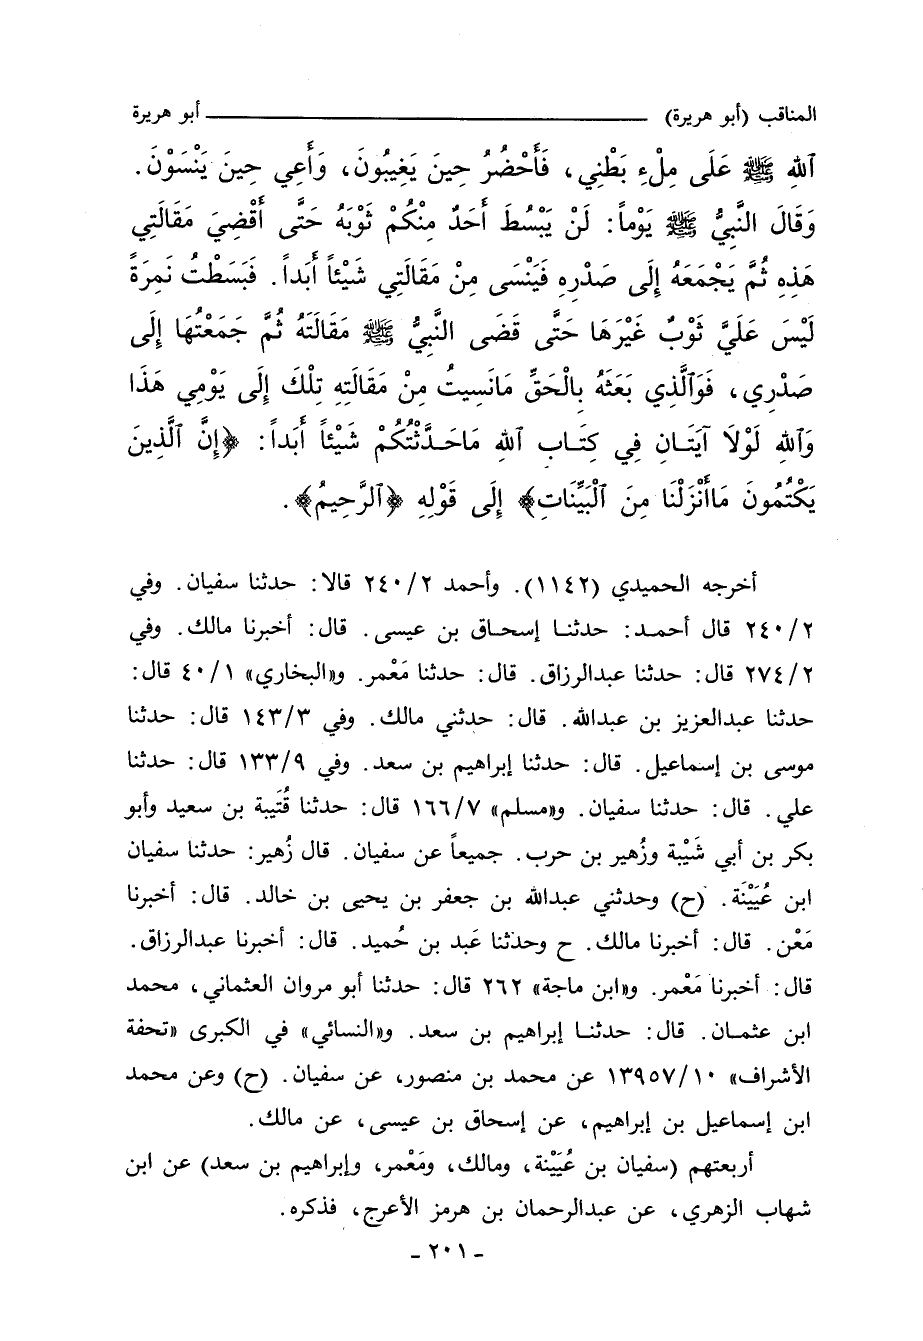 المناقب (أبو هريرة) ـــــــــــــــــ أبو هريرة
ٱللهِ ﷺ عَلَى مِلْءِ بَطْنِي، فَأَحْضُرُ حِينَ يَغِيبُونَ، وَأَعِي حِينَ يَنْسَوْنَ.
وَقَالَ النَّبِيُّ ﷺ يَوْماً: لَنْ يَبْسُطَ أَحَدٌ مِنْكُمْ ثَوْبَهُ حَتَّى أَقْضِيَ مَقَالَتِي
هَذِهِ ثُمَّ يَجْمَعَهُ إِلَى صَدْرِهِ فَيَنْسَى مِنْ مَقَالَتِي شَيْئاً أَبَداً. فَبَسَطْتُ نَمِرَةً
لَيْسَ عَلَيَّ ثَوْبٌ غَيْرَهَا حَتَّى قَضَى النَّبِيُّ ﷺ مَقَالَتَهُ ثُمَّ جَمَعْتُهَا إِلَى
صَدْرِي، فَوَٱلَّذِي بَعَثَهُ بِالْحَقِّ مَانَسِيتُ مِنْ مَقَالَتِهِ تِلْكَ إِلَى يَوْمِي هَذَا
وَٱللهِ لَوْلاَ آيَتَانِ فِي كِتَابِ ٱللهِ مَاحَدَّثْتُكُمْ شَيْئاً أَبَداً: ﴿إِنَّ ٱلَّذِينَ
يَكْتُمُونَ مَاأَنْزَلْنَا مِنَ ٱلْبَيِّنَاتِ﴾ إِلَى قَوْلِهِ ﴿ٱلرَّحِيمُ﴾.
أخرجه الحميدي (١١٤٢). وأحمد ٢/ ٢٤٠ قالا: حدثنا سفيان. وفي
٢/ ٢٤٠ قال أحمد: حدثنا إسحاق بن عيسى. قال: أخبرنا مالك. وفي
٢/ ٢٧٤ قال: حدثنا عبدالرزاق. قال: حدثنا مَعْمر. و«البخاري» ١/ ٤٠ قال:
حدثنا عبدالعزيز بن عبدالله. قال: حدثني مالك. وفي ٣/ ١٤٣ قال: حدثنا
موسى بن إسماعيل. قال: حدثنا إبراهيم بن سعد. وفي ٩/ ١٣٣ قال: حدثنا
علي. قال: حدثنا سفيان. و«مسلم» ٧/ ١٦٦ قال: حدثنا قُتَيبة بن سعيد وأبو
بكر بن أبي شَيْبة وزُهير بن حرب. جميعاً عن سفيان. قال زُهير: حدثنا سفيان
ابن عُيَيْنَة. (ح) وحدثني عبدالله بن جعفر بن يحيى بن خالد. قال: أخبرنا
مَعْن. قال: أخبرنا مالك. ح وحدثنا عَبد بن حُميد. قال: أخبرنا عبدالرزاق.
قال: أخبرنا مَعْمر. و«ابن ماجة» ٢٦٢ قال: حدثنا أبو مروان العثماني، محمد
ابن عثمان. قال: حدثنا إبراهيم بن سعد. و«النسائي» في الكبرى «تحفة
الأشراف» ١٠/ ١٣٩٥٧ عن محمد بن منصور، عن سفيان. (ح) وعن محمد
ابن إسماعيل بن إبراهيم، عن إسحاق بن عيسى، عن مالك.
أربعتهم (سفيان بن عُيَيْنة، ومالك، ومَعْمر، وإبراهيم بن سعد) عن ابن
شهاب الزهري، عن عبدالرحمان بن هرمز الأعرج، فذكره.
- ٢٠١ -